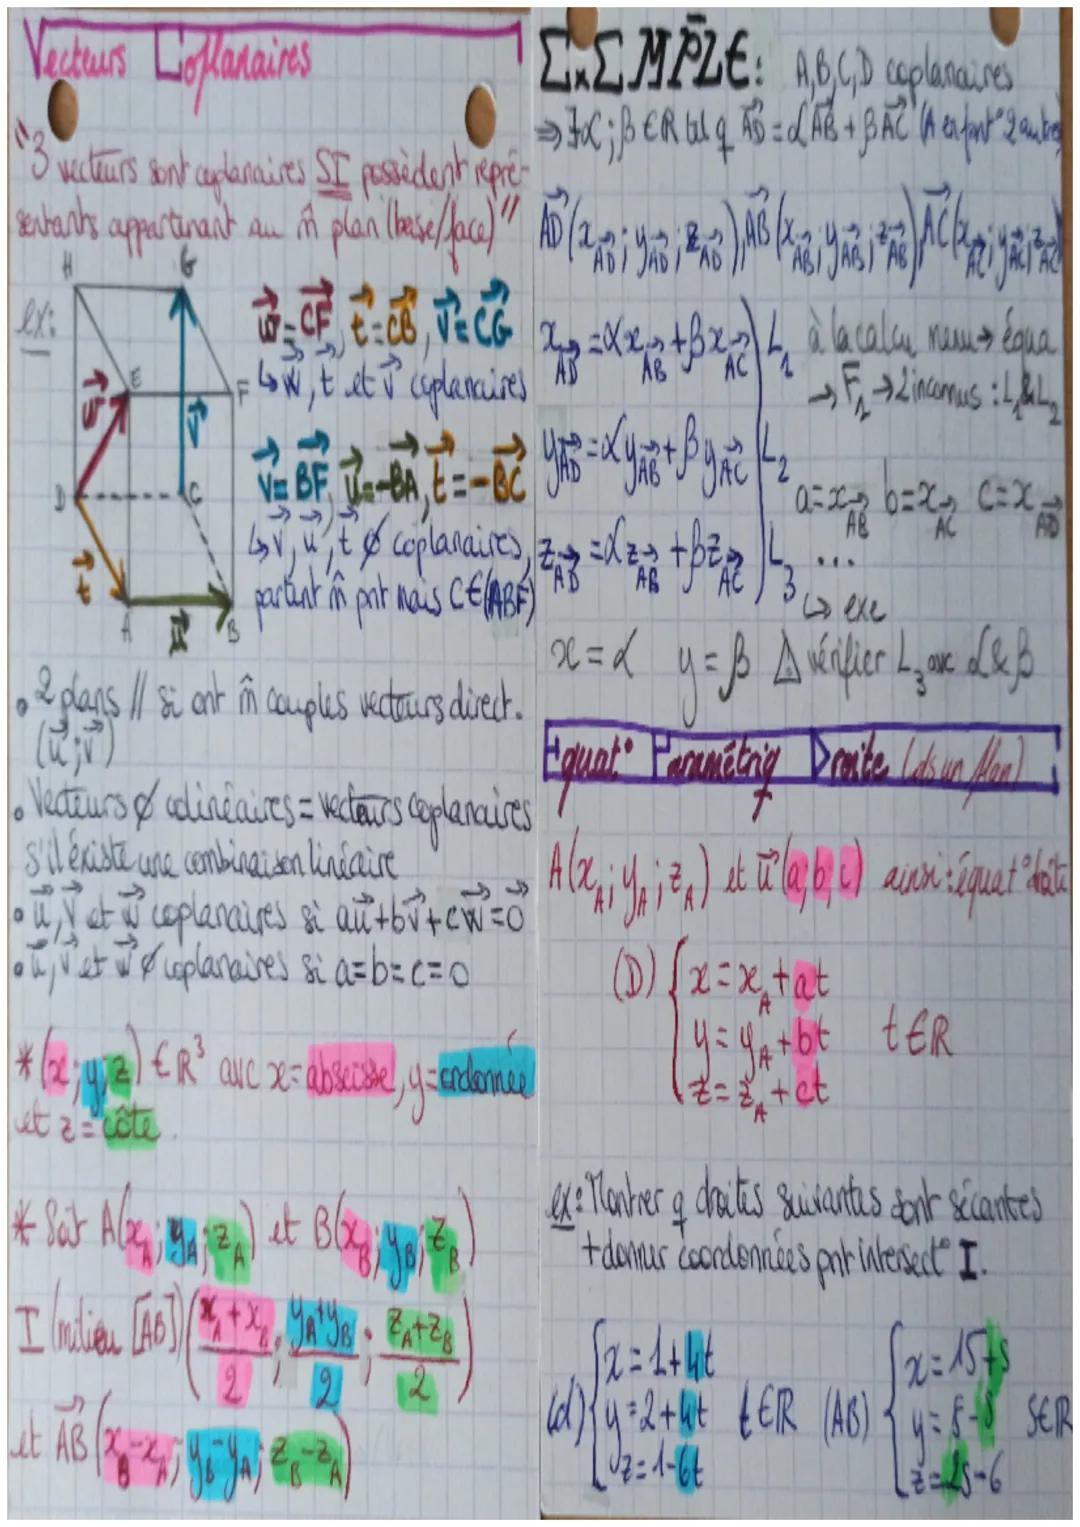 Vecteurs Coplanaires
"3 vecteurs sont coplanaires SI possèdent repré-
sentants appartenant au m̂ plan (base/face)"
ex:
H G
E F
D C
A B
w⃗ u⃗ t⃗ v⃗
w⃗ = CF⃗, t⃗ = CB⃗, v⃗ = CG⃗
↳ w⃗, t⃗ et v⃗ coplanaires
v⃗ = BF⃗, u⃗ = -BA⃗, t⃗ = -BC⃗
↳ v⃗, u⃗, t⃗ ∅ coplanaires,
partant m̂ pnt mais C∈(ABF)
• 2 plans // si ont m̂ couples vecteurs direct.
(u⃗;v⃗)
• Vecteurs ∅ colinéaires = vecteurs coplanaires
s'il existe une combinaison linéaire
• u⃗, v⃗ et w⃗ coplanaires si au⃗+bv⃗+cw⃗=0⃗
• u⃗, v⃗ et w⃗ ∅ coplanaires si a=b=c=0
* (x;y;z) ∈ R³ avec x= abscisse, y= ordonnée
et z = côte.
* Soit A(x_A; y_A; z_A) et B(x_B; y_B; z_B)
I (milieu [AB]) ((x_A+x_B)/2; (y_A+y_B)/2; (z_A+z_B)/2)
et AB⃗ (x_B-x_A; y_B-y_A; z_B-z_A)
EXEMPLE: A,B,C,D coplanaires
⇒ ∃α;β ∈R tel q AD⃗ = αAB⃗ + βAC⃗ (A en font° 2 autres
AD⃗(x_AD⃗; y_AD⃗; z_AD⃗), AB⃗(x_AB⃗; y_AB⃗; z_AB⃗), AC⃗(x_AC⃗; y_AC⃗; z_AC⃗)
x_AD⃗ = αx_AB⃗ + βx_AC⃗ L₁ à la calcu menu → équa
→ F₁ → 2 inconnus : L₁&L₂
y_AD⃗ = αy_AB⃗ + βy_AC⃗ L₂
a=x_AB⃗ b=x_AC⃗ c=x_AD⃗
z_AD⃗ = αz_AB⃗ + βz_AC⃗ L₃ ...
↳ exe
x = α y = β ⚠ vérifier L₃ avec α&β
Equat° Paramétriq Droite (ds un plan)
A(x_A; y_A; z_A) et u⃗ (a;b;c) ainsi : équat° droite
(D) { x = x_A + at
y = y_A + bt t∈R
z = z_A + ct
ex: Montrer q droites suivantes sont sécantes
+ donner coordonnées pnt intersect° I.
(d) { x = 1+4t (AB) { x = 15+s
y = 2+4t t∈R y = 8-s s∈R
z = 1-6t z = 2s-6